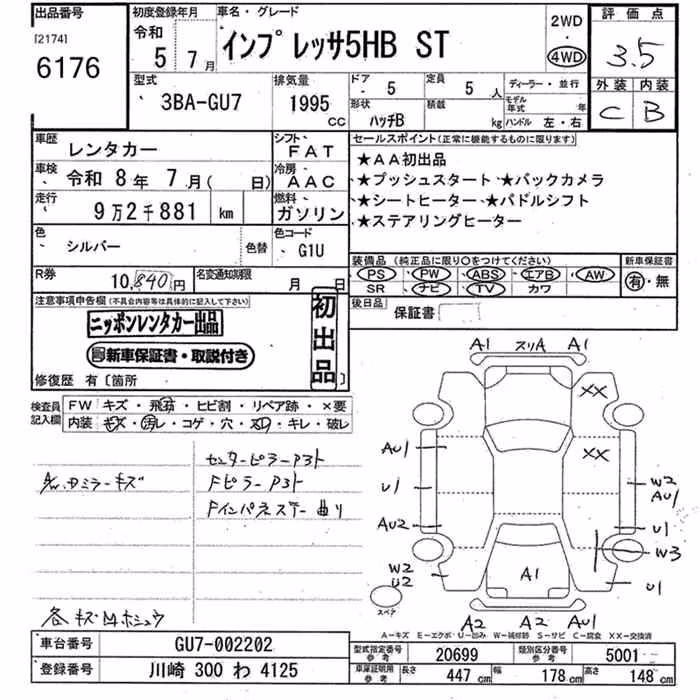 出品番号
[2174]
6176
初度登録年月
令和
5 7月
車名・グレード
インプレッサ5HB ST
2WD
・
4WD
評価点
3.5
外装 内装
C B
型式
3BA-GU7
排気量
1995 CC
ドア
・ 5
定員
5 人
形状
ハッチB
積載
kg
ディーラー・並行
モデル年式 年
ハンドル 左・右
車歴
レンタカー
シフト
FAT
車検
令和 8年 7月( 日)
冷房
AAC
走行
9万2千881 km
燃料
ガソリン
色
シルバー
色替
色コード
G1U
R券
10,840円
名変通知期限
月 日
セールスポイント(正常に機能するものに限ります)
★AA初出品
★プッシュスタート ★バックカメラ
★シートヒーター ★パドルシフト
★ステアリングヒーター
装備品(純正品に限り○をつけてください)
PS PW ABS エアB AW
SR ナビ TV カワ
新車保証書
有・無
後日品
保証書
注意事項申告欄(不具合内容等は具体的に記入して下さい)
ニッポンレンタカー出品
新車保証書・取説付き
初出品
修復歴 有〔箇所
検査員記入欄
FW キズ・飛石・ヒビ割・リペア跡・×要
内装 キズ・汚レ・コゲ・穴・スレ・キレ・破レ
センターピラーアト
Fピラーアト
Fインパネステー曲り
各キズ凹ホシュウ
A1 スリA A1
XX
AU1
XX
U1
W2
AU1
AU2
U1
W3
W2
U2
A1
U1
スペア
A2 A2 AU1
A-キズ E-エクボ U-凹み W-補修跡 S-サビ C-腐食 XX-交換済
車台番号
GU7-002202
登録番号
川崎 300 わ 4125
型式指定番号
参考
20699
類別区分番号
参考
5001
車庫証明用
参考
長さ 447 cm 幅 178 cm 高さ 148 cm